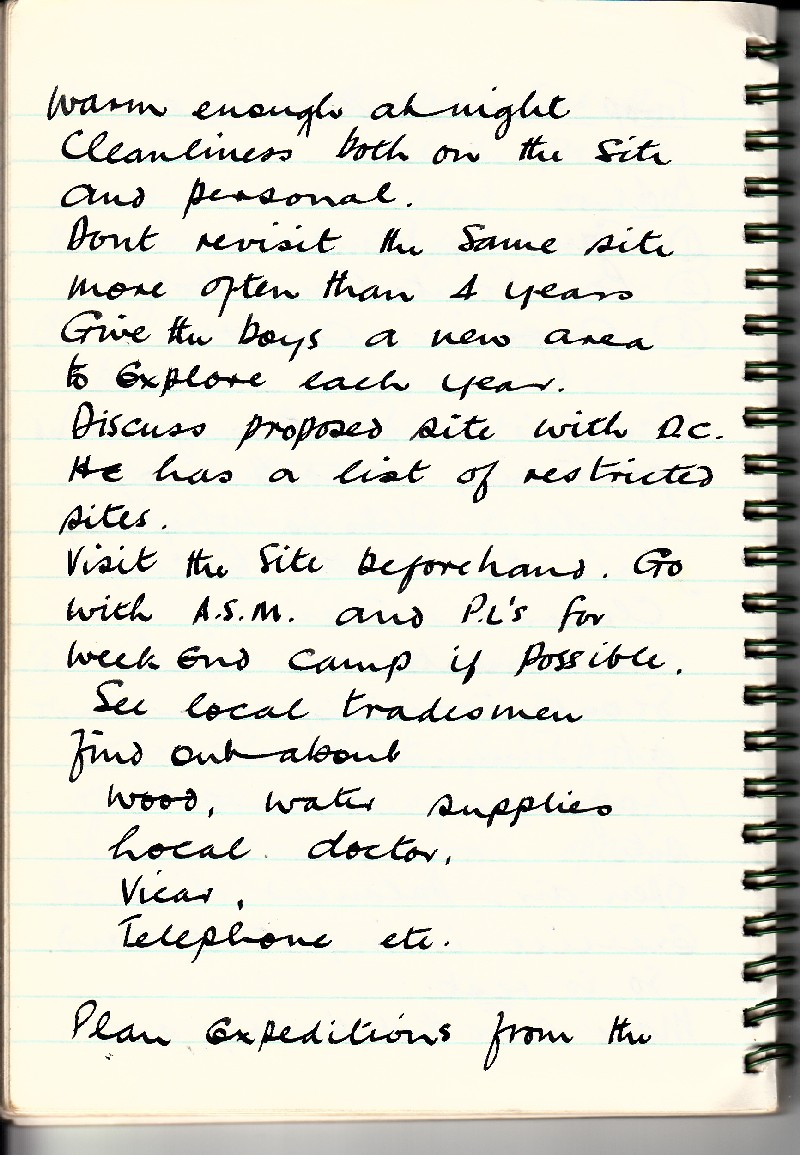 Warm enough at night
Cleanliness both on the Site
and personal.
Dont revisit the Same site
more often than 4 years
Give the boys a new area
to Explore each year.
Discuss proposed site with D.C.
He has a list of restricted
sites.
Visit the Site beforehand. Go
with A.S.M. and P.L's for
Week End Camp if possible.
See local tradesmen
find out about
Wood, water supplies
Local doctor,
Vicar,
Telephone etc.
Plan Expeditions from the